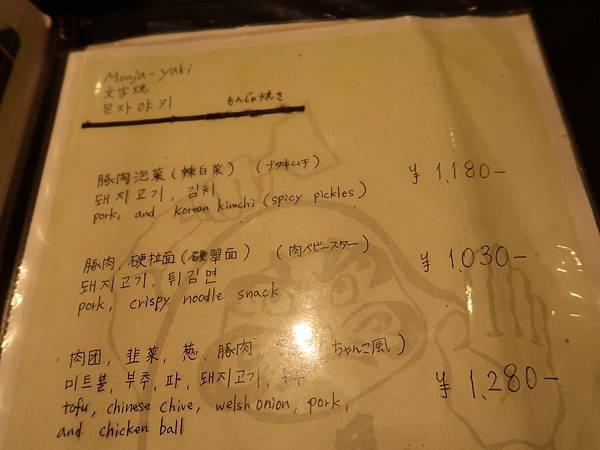 Monja-yaki
文字焼
몬자야키 もんじゃ焼き
豚肉泡菜(辣白菜) (ブタキムチ) ¥1,180-
돼지고기, 김치
pork, and korean kimchi (spicy pickles)
豚肉, 硬拉面(硬翠面) (肉ベビースター) ¥1,030-
돼지고기, 튀김면
pork, crispy noodle snack
肉团, 韭菜, 葱, 豚肉 ちゃんこ風) ¥1,280-
미트볼, 부추, 파, 돼지고기,
tofu, chinese chive, welsh onion, pork,
and chicken ball